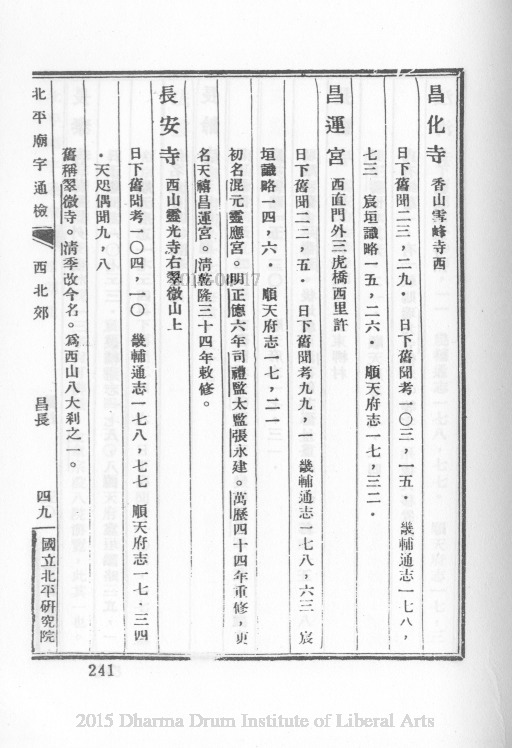 昌化寺 香山雩峰寺西
日下舊聞二三,二九· 日下舊聞考一〇三,一五· 畿輔通志一七八,
七三 宸垣識略一五,二六· 順天府志一七,三二·
昌運宮 西直門外三虎橋西里許
日下舊聞二二,五· 日下舊聞考九九,一 畿輔通志一七八,六三 宸
垣識略一四,六· 順天府志一七,二一
初名混元靈應宮。明正德六年司禮監太監張永建。萬歷四十四年重修,更
名天禧昌運宮。清乾隆三十四年敕修。
長安寺 西山靈光寺右翠微山上
日下舊聞考一〇四,一〇 畿輔通志一七八,七七 順天府志一七·三四
·天咫偶聞九,八
舊稱翠微寺。清季改今名。爲西山八大刹之一。
北平廟宇通檢 西北郊 昌長 四九 國立北平研究院
241
2015 Dharma Drum Institute of Liberal Arts